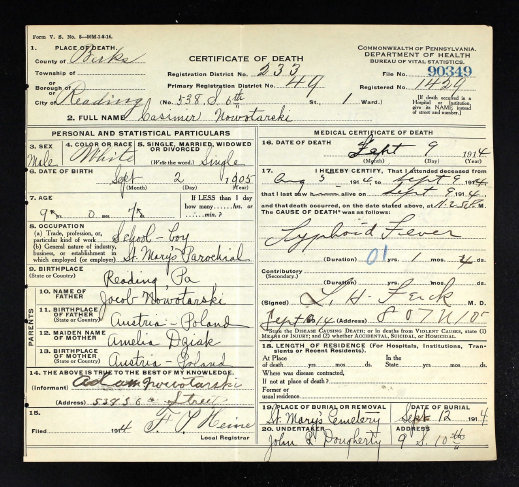 Form V. S. No. 5
1. PLACE OF DEATH,
County of Berks
Township of
or
Borough of
or
City of Reading
CERTIFICATE OF DEATH
Registration District No. 233
Primary Registration District No. 49
(No. 538 S 6th St., 1 Ward.)
COMMONWEALTH OF PENNSYLVANIA.
DEPARTMENT OF HEALTH
BUREAU OF VITAL STATISTICS.
File No. 90349
Registered No. 1429
[If death occurred in a Hospital or Institution, give its NAME instead of street and number.]
2. FULL NAME Cassimer Nowotarski
PERSONAL AND STATISTICAL PARTICULARS
3. SEX
Male
4. COLOR OR RACE
White
5. SINGLE, MARRIED, WIDOWED OR DIVORCED
(Write the word.) Single
6. DATE OF BIRTH
Sept 2 1905
(Month) (Day) (Year)
7. AGE
9 yrs. 0 mos. 7 ds.
If LESS than 1 day how many hrs. or min.?
8. OCCUPATION
(a) Trade, profession, or particular kind of work School-boy
(b) General nature of industry, business, or establishment in which employed (or employer) St Mary's Parochial
9. BIRTHPLACE
(State or Country) Reading, Pa
PARENTS
10. NAME OF FATHER
Jocob Nowotarski
11. BIRTHPLACE OF FATHER
(State or Country) Austria-Poland
12. MAIDEN NAME OF MOTHER
Amelia Dziak
13. BIRTHPLACE OF MOTHER
(State or Country) Austria-Poland
14. THE ABOVE IS TRUE TO THE BEST OF MY KNOWLEDGE.
(Informant) adam Nowotarski
(Address) 537 S 6 Street
15.
Filed 1914
Local Registrar
MEDICAL CERTIFICATE OF DEATH
16. DATE OF DEATH
Sept 9 1914
(Month) (Day) (Year)
17. I HEREBY CERTIFY, That I attended deceased
from Aug 3 1914, to Sept 9 1914
that I last saw alive on Sept 9 1914
and that death occurred, on the date stated above, at M.
The CAUSE OF DEATH* was as follows:
Typhoid Fever
(Duration) yrs. 1 mos. 4 ds.
01
Contributory
(Secondary)
(Duration) yrs. mos. ds.
(Signed) M. D.
1914 (Address) 807 N 10th
*State the DISEASE CAUSING DEATH; or in deaths from VIOLENT CAUSES, state (1) MEANS OF INJURY; and (2) whether ACCIDENTAL, SUICIDAL or HOMICIDAL.
18. LENGTH OF RESIDENCE (For Hospitals, Institutions, Transients or Recent Residents).
At Place of death yrs. mos. ds. In the State yrs. mos. ds.
Where was disease contracted,
If not at place of death?
Former or usual residence
19. PLACE OF BURIAL OR REMOVAL
St. Mary's Cemetery
DATE OF BURIAL
Sept 12 1914
20. UNDERTAKER
John R Dougherty
ADDRESS
9 S. 10th